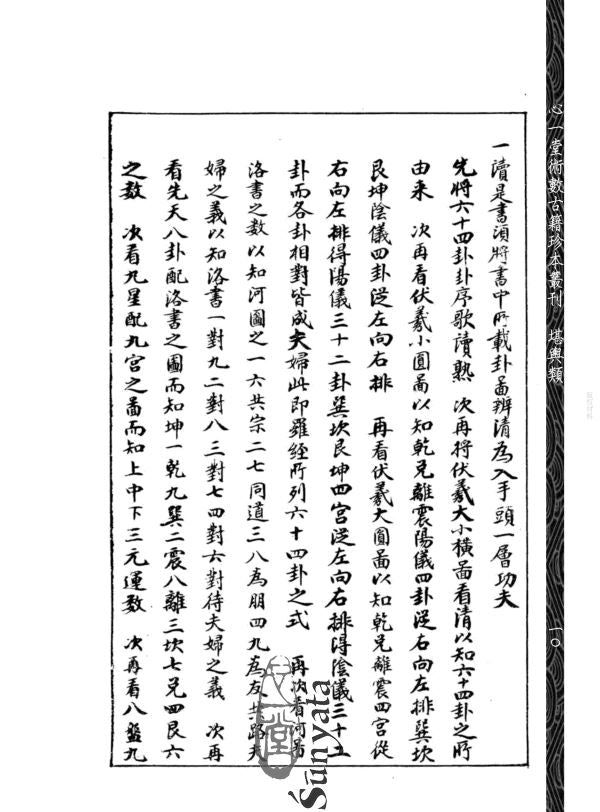 心一堂術數古籍珍本叢刊 堪輿類
一〇
一讀是書須將書中所載卦畐辨清為入手頭一層功夫
先將六十四卦卦序歌讀熟 次再將伏羲大小橫畐看清以知六十四卦之所
由来 次再看伏羲小圓畐以知乾兄離震陽儀四卦従右向左排巽坎
艮坤陰儀四卦従左向右排 再看伏羲大圓畐以知乾兄離震四宮従
右向左排得陽儀三十二卦巽坎艮坤四宮従左向右排得陰儀三十二
卦而各卦相對皆成夫婦此即羅經所列六十四卦之式 再次看河畐
洛書之数以知河圖之一六共宗二七同道三八為朋四九為友共路夫
婦之義以知洛書一對九二對八三對七四對六對待夫婦之義 次再
看先天八卦配洛書之圖而知坤一乾九巽二震八離三坎七兄四艮六
之数 次看九星配九宮之畐而知上中下三元運数 次再看八盤九
心一堂
Śūnyata
版权材料